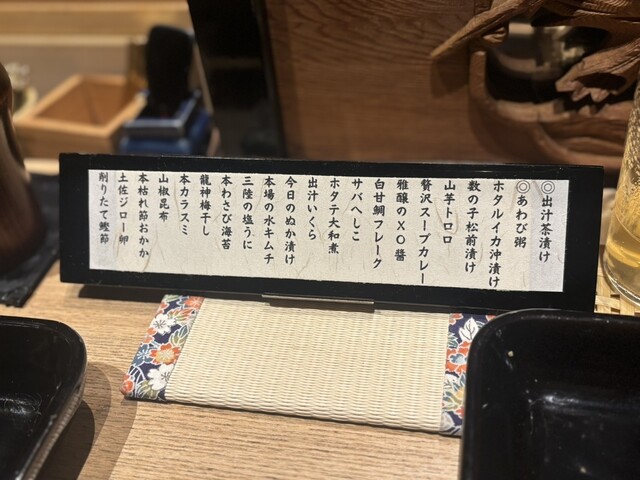 ◎出汁茶漬け
◎あわび粥
ホタルイカ沖漬け
数の子松前漬け
山芋トロロ
贅沢スープカレー
雅醸のXO醬
白甘鯛フレーク
サバへしこ
ホタテ大和煮
出汁いくら
今日のぬか漬け
本場の水キムチ
三陸の塩うに
本わさび海苔
龍神梅干し
本カラスミ
山椒昆布
本枯れ節おかか
土佐ジロー卵
削りたて鰹節